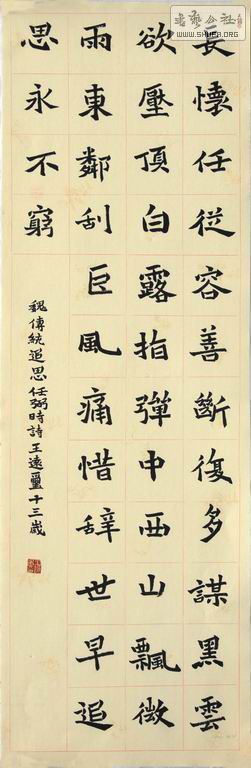 長懷任從容善斷復多謀黑雲
欲壓頂白露指彈中西山飄微
雨東鄰刮巨風痛惜辞世早追
思永不窮
魏傳統追思任弼時詩王遠璽十三歲
WWW.SHUFA.ORG